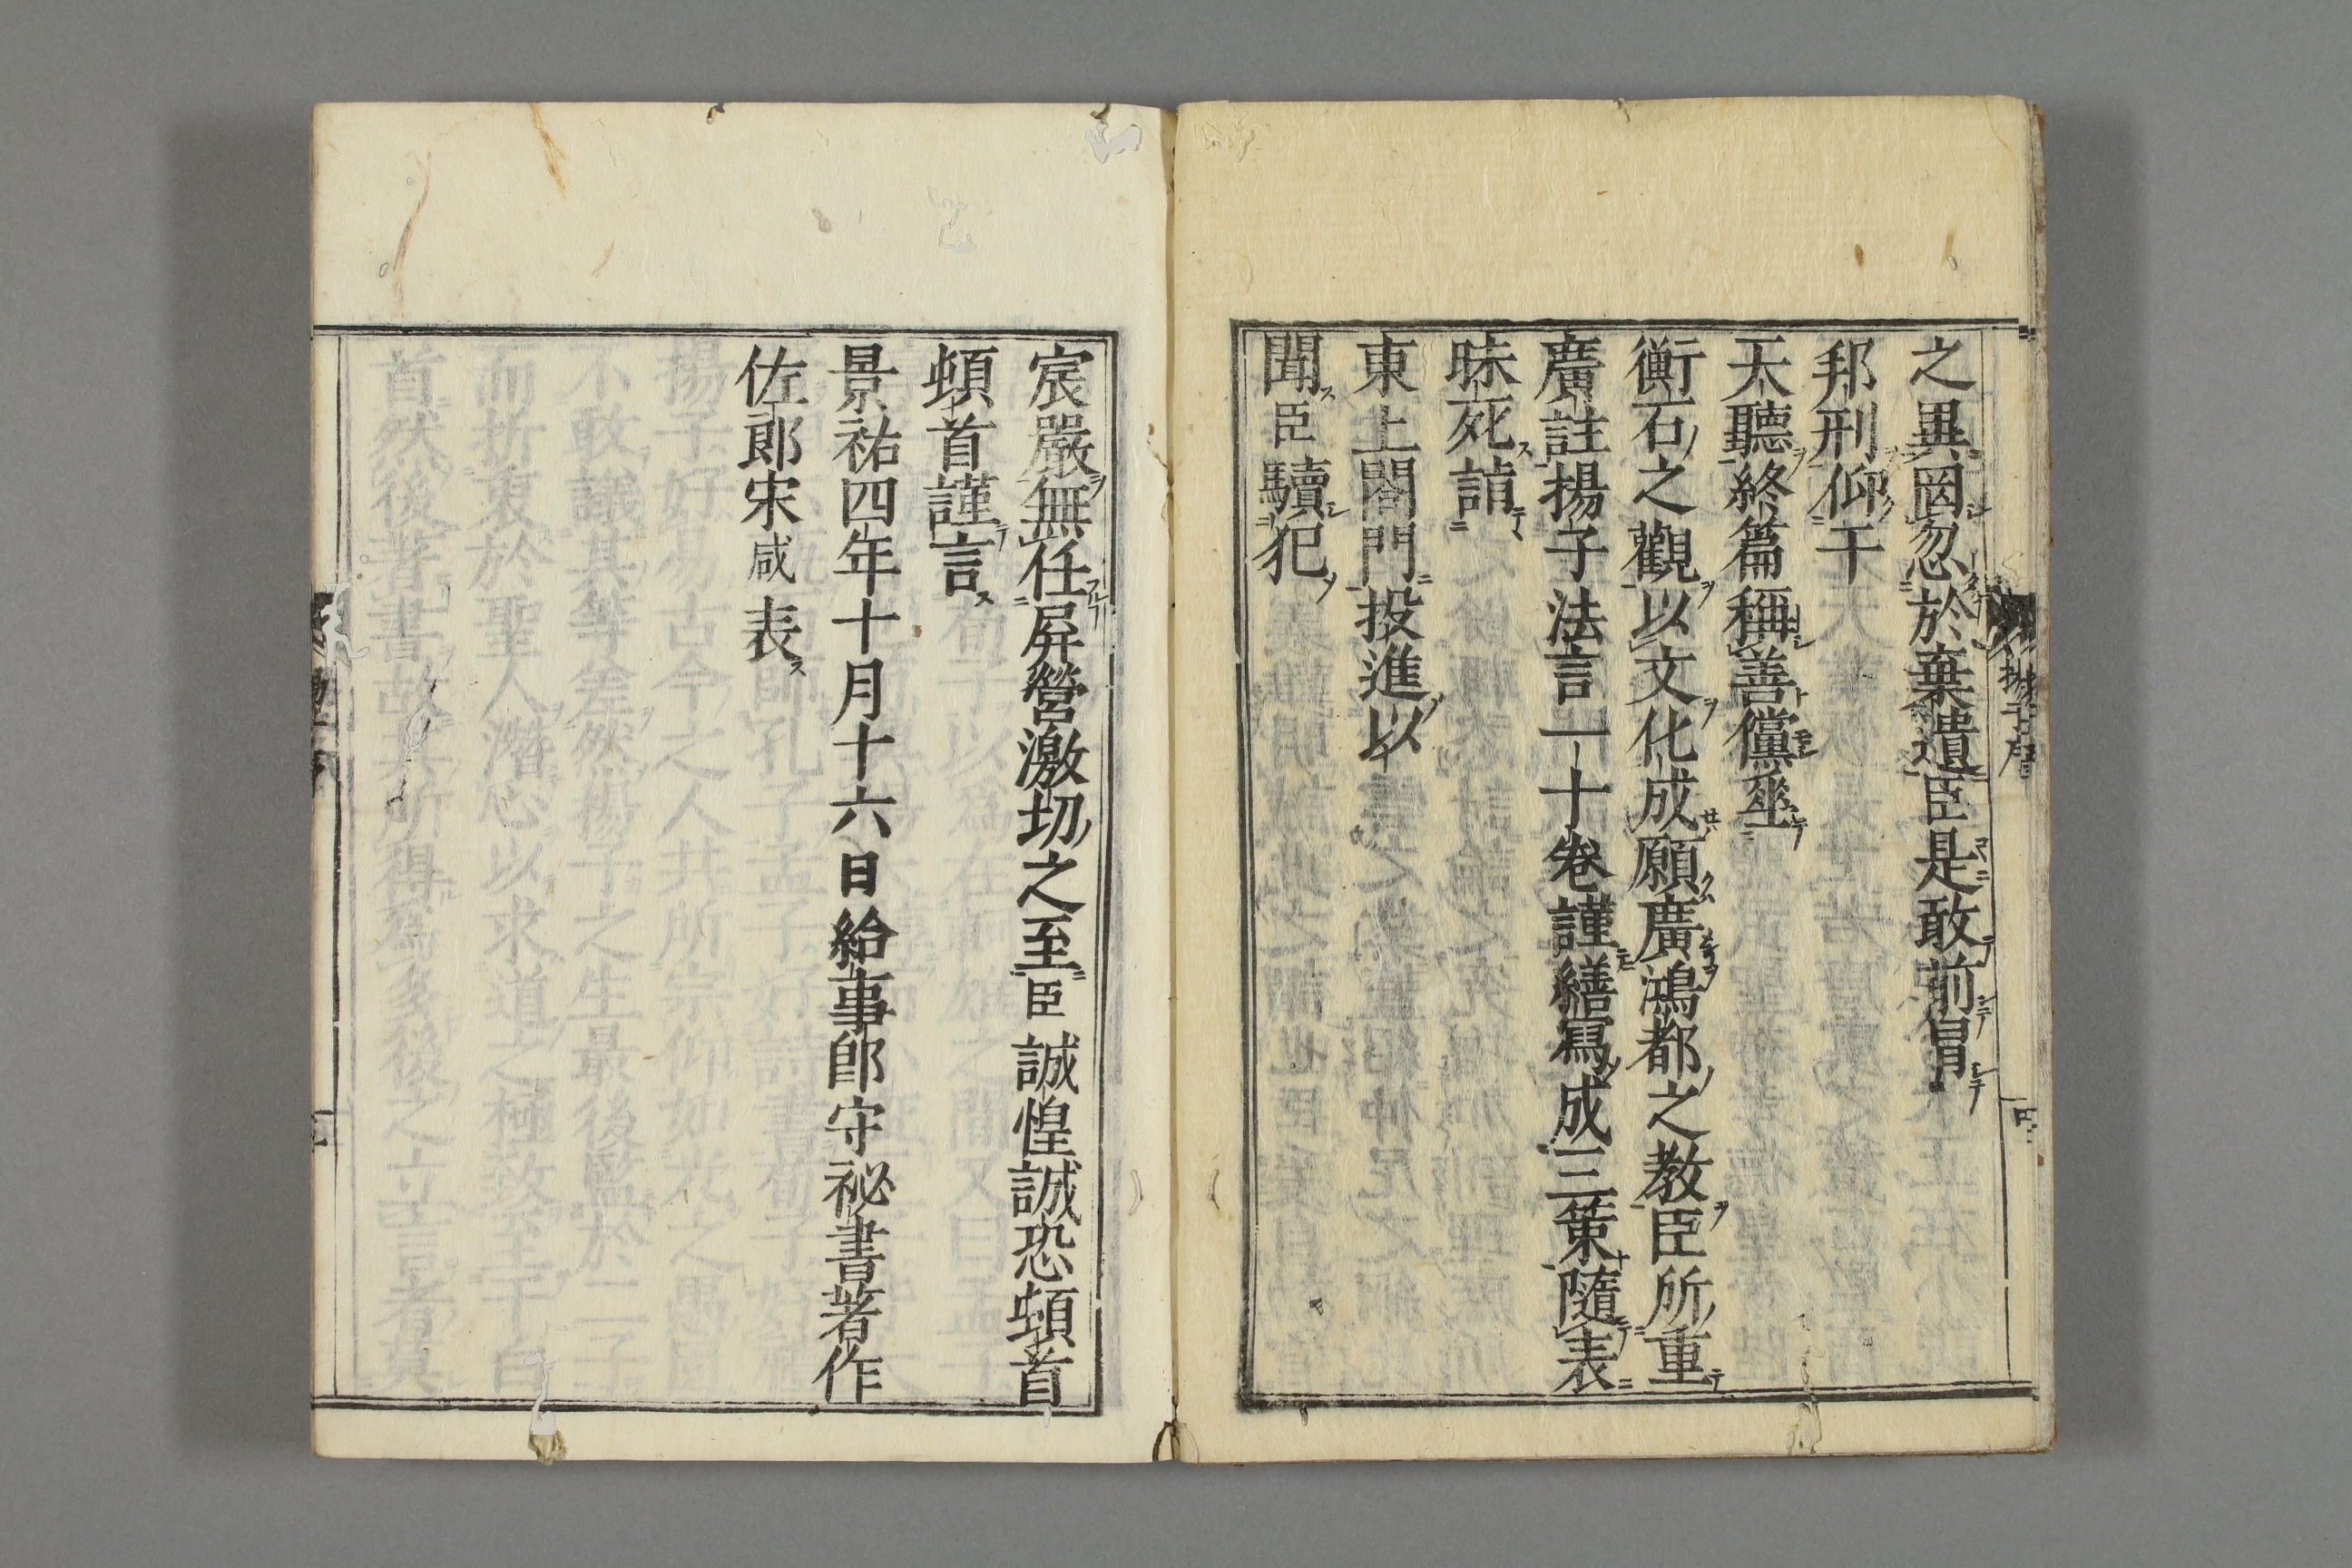 之異罔忽於棄遺臣是敢前冐
邦刑仰干
天聽終篇稱善儻垂
衡石之觀以文化成願廣鴻都之教臣所重
廣註揚子法言一十卷謹繕寫成三策隨表
昧死詣
東上閤門投進以
聞臣 驖犯
宸嚴無任屏營激切之至臣 誠惶誠恐頓首
頓首謹言
景祐四年十月十六日給事郎守祕書著作
佐郎宋咸 表